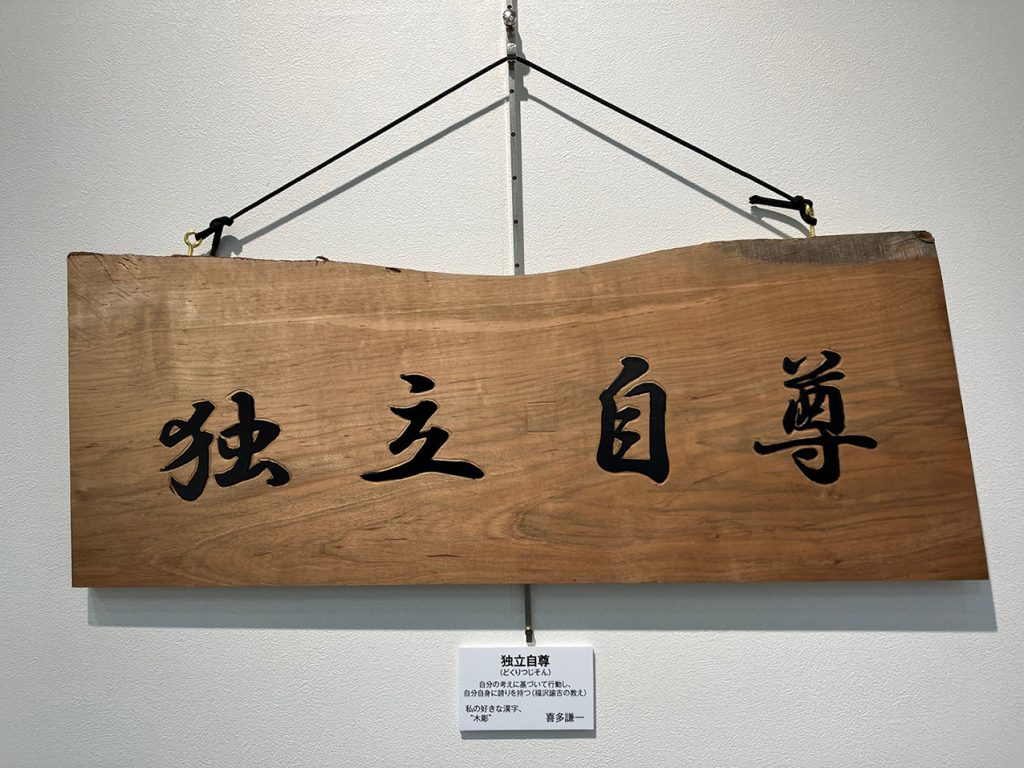 独立自尊
独立自尊
(どくりつじそん)
自分の考えに基づいて行動し、
自分自身に誇りを持つ(福沢諭吉の教え)
私の好きな漢字、
"木彫"　喜多謙一